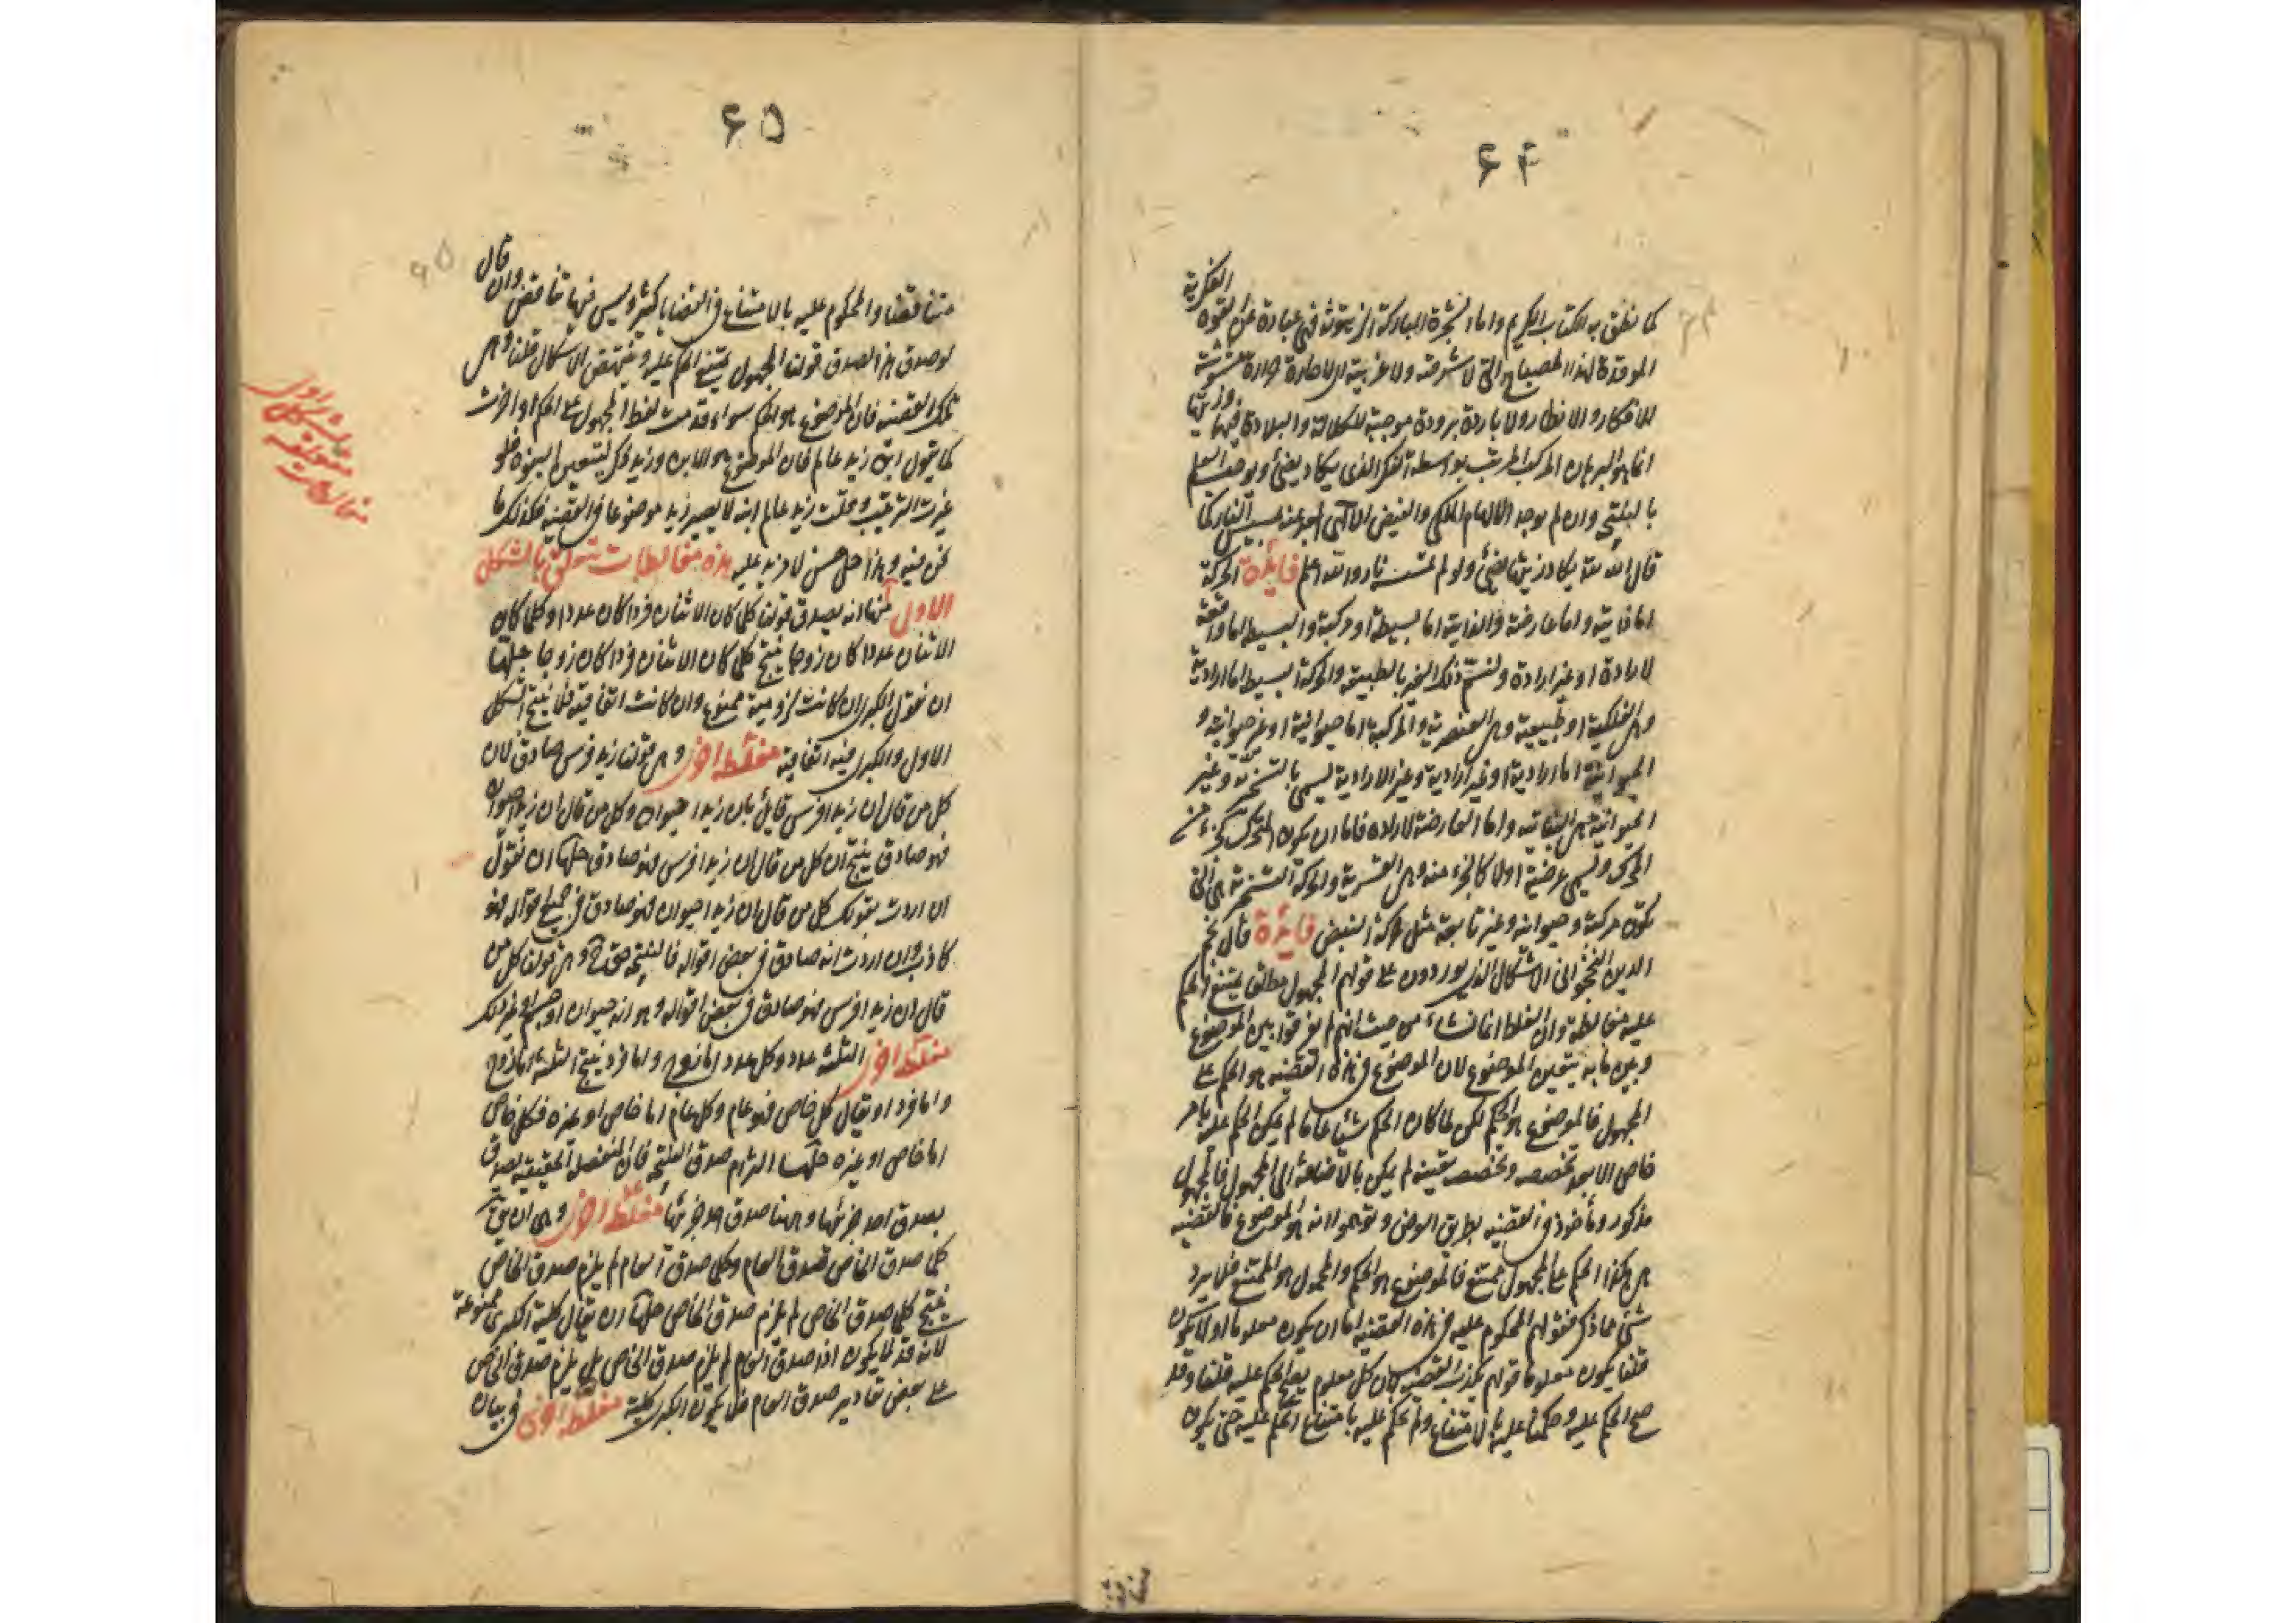 ۶۴
كما نطق به الكتاب الكريم واما الشجرة المباركة الزيتونة فهى عبارة عن القوة الفكرية
الموقدة لهذا المصباح التى لا شرقية ولا غربية اى لا حارة حرارة مشوشة
للافكار والانظار ولا باردة برودة موجبة للكلالة والبلادة وزيتها
انما هو البرهان المركب المرتب بواسطة الفكر الذى يكاد يضئ ويوجب العلم
بالنتيجة وان لم يوجد الالهام الملكى والفيض الالهى المعبر عنه بمس النار كما
قال الله تعالى يكاد زيتها يضئ ولو لم تمسسه نار والله اعلم فايدة الحركة
اما ذاتية واما عارضة والذاتية اما بسيطة او مركبة والبسيطة اما واقعة
لارادة او غير ارادة ولنسم ذلك الغير بالطبيعة والحركة البسيطة اما ارادية
وهى الفلكية او طبيعية وهى العنصرية والمركبة اما حيوانية او غير حيوانية و
الحيوانية اما ارادية او غير ارادية وغير الارادية يسمى بالتسخيرية وغير
الحيوانية هى النباتية واما العارضة فاما ان يكون المتحرك كجزء من
المحرك ويسمى عرضية اولا كالجزء منه وهى القسرية والحركة التسخيرية هى التى
تكون مركبة وحيوانية وغير تابعة مثل حركة النبض فايدة قال نجم
الدين النخجوانى الاشكال الذى يوردون على قولهم المجهول مطلقا يمتنع الحكم
عليه مغالطة وان الغلط انما نشاء من حيث انهم لم يفرقوا بين الموضوع
وبين ما به يتعين الموضوع لان الموضوع فى هذه القضية هو الحكم على
المجهول فالموضوع هو الحكم لكن لما كان الحكم شيئا عاما لم يكن الحكم عليه بامر
خاص الا بعد تخصصه وتخصصه بقينه لم يكن بالاضافة الى المجهول فالمجهول
مذكور ومأخوذ فى القضية بطريق العرض وتوهموا انه هو الموضوع فالقضية
هى هكذا الحكم على المجهول ممتنع فالموضوع هو الحكم والمحمول هو الممتنع فلا يرد
شئ مما ذكر فقولهم المحكوم عليه فى هذه القضية اما ان يكون معلوما او لا يكون
قلنا يكون معلوما قولهم يكذب القضية لان كل معلوم يصح الحكم عليه قلنا وقد
صح الحكم عليه وحكمنا عليه بالامتناع ولم نحكم عليه بامتناع الحكم عليه حتى يكون
۶۵
متناقضا والمحكوم عليه بالامتناع فى القضايا كثير وليس فيها تناقض وان قال
لو صدق هذا لصدق قولنا المجهول يمتنع الحكم عليه وينتهض الاشكال قلنا وهى
تلك القضية فان الموضوع هو الحكم سواء قدمت لفظ المجهول على الحكم او اخرت
كما تقول ابن زيد عالم فان الموضوع هو الابن وزيد ذكر لتعيين الابن فلو
غيرت الترتيب وقلت زيد عالم ابنه لا يصير زيد موضوعا فى القضية فكذلك ما
نحن فيه وهذا حل حسن لا مزيد عليه هذه مغالطات تتعلق بالشكل
الاول منها انه يصدق قولنا كلما كان الاثنان فردا كان عددا وكلما كان
الاثنان عددا كان زوجا ينتج كلما كان الاثنان فردا كان زوجا حلها
ان نقول الكبرى ان كانت لزومية ممنوع وان كانت اتفاقية فلا ينتج الشكل
الاول والكبرى فيه اتفاقية مغلطة اخرى وهى قولنا زيد فرس صادق لان
كل من قال ان زيدا فرس قايل بان زيدا حيوان وكل من قال ان زيدا حيوان
فهو صادق ينتج ان كل من قال ان زيدا فرس فهو صادق حلها ان نقول
ان اردت بقولك كل من قال ان زيدا حيوان فهو صادق فى جميع اقواله فهو
كاذب وان اردت انه صادق فى بعض اقواله فالنتيجة حق وهى قولنا كل من
قال ان زيدا فرس فهو صادق فى بعض اقواله وهو انه حيوان او جسم او غير ذلك
مغلطة اخرى الثلثة عدد وكل عدد اما زوج واما فرد ينتج الثلثة اما زوج
واما فرد او يقال كل خاص فهو عام وكل عام اما خاص او غيره فكل خاص
اما خاص او غيره حلها التزام صدق النتيجة فان المنفصلة الحقيقية يصدق
بصدق احد جزئيها وههنا صدق احد جزئيها مغلطة اخرى وهى ان يقال
كلما صدق الخاص صدق العام وكلما صدق العام لم يلزم صدق الخاص
ينتج كلما صدق الخاص لم يلزم صدق الخاص حلها ان يقال كلية الكبرى ممنوعة
لانه قد لا يكون اذا صدق العام لم يلزم صدق الخاص بل يلزم صدق الخاص
على بعض تقادير صدق العام فلا يكون الكبرى كلية مغلطة اخرى فى بيان